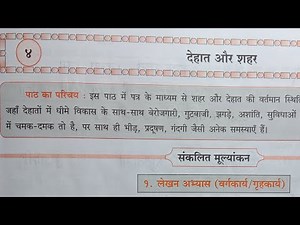 ४
देहात और शहर
पाठ का परिचय : इस पाठ में पत्र के माध्यम से शहर और देहात की वर्तमान स्थिति
जहाँ देहातों में धीमे विकास के साथ-साथ बेरोजगारी, गुटबाजी, झगड़े, अशांति, सुविधाओं
में चमक-दमक तो है, पर साथ ही भीड़, प्रदूषण, गंदगी जैसी अनेक समस्याएँ हैं।
संकलित मूल्यांकन
१. लेखन अभ्यास (वर्गकार्य/गृहकार्य)